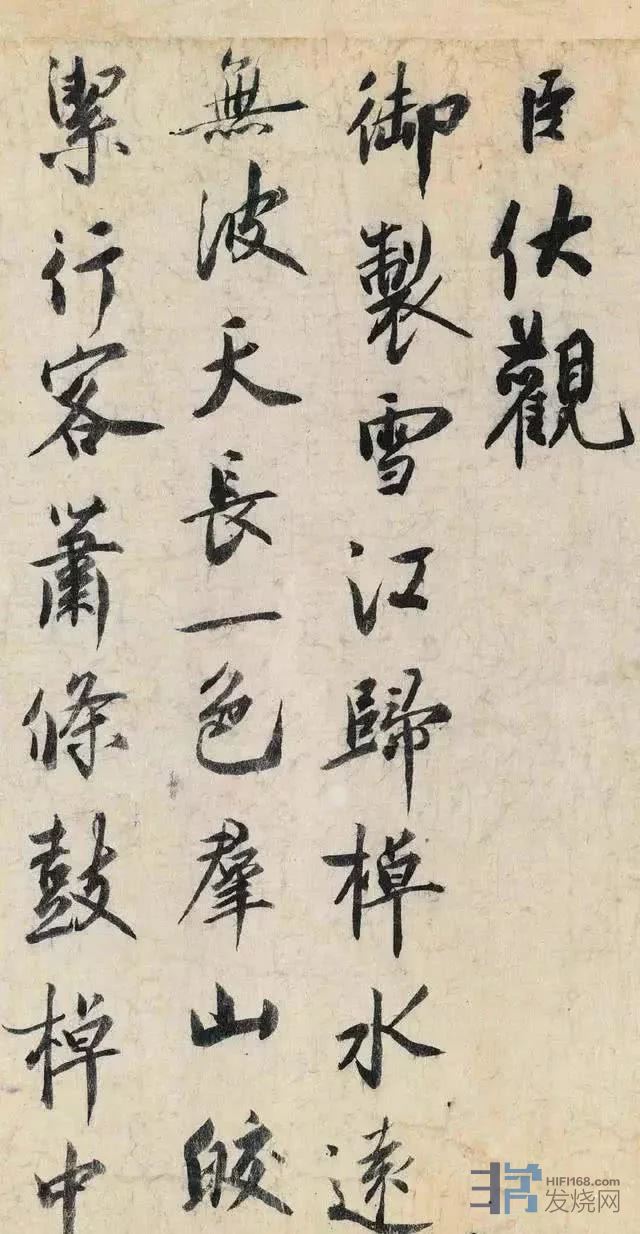 臣伏觀
御製雪江歸棹水遠
無波天長一色羣山皎
潔行客蕭條鼓棹中
HIFI168.com
发烧网